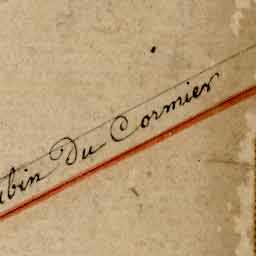 ubin Du Cormier